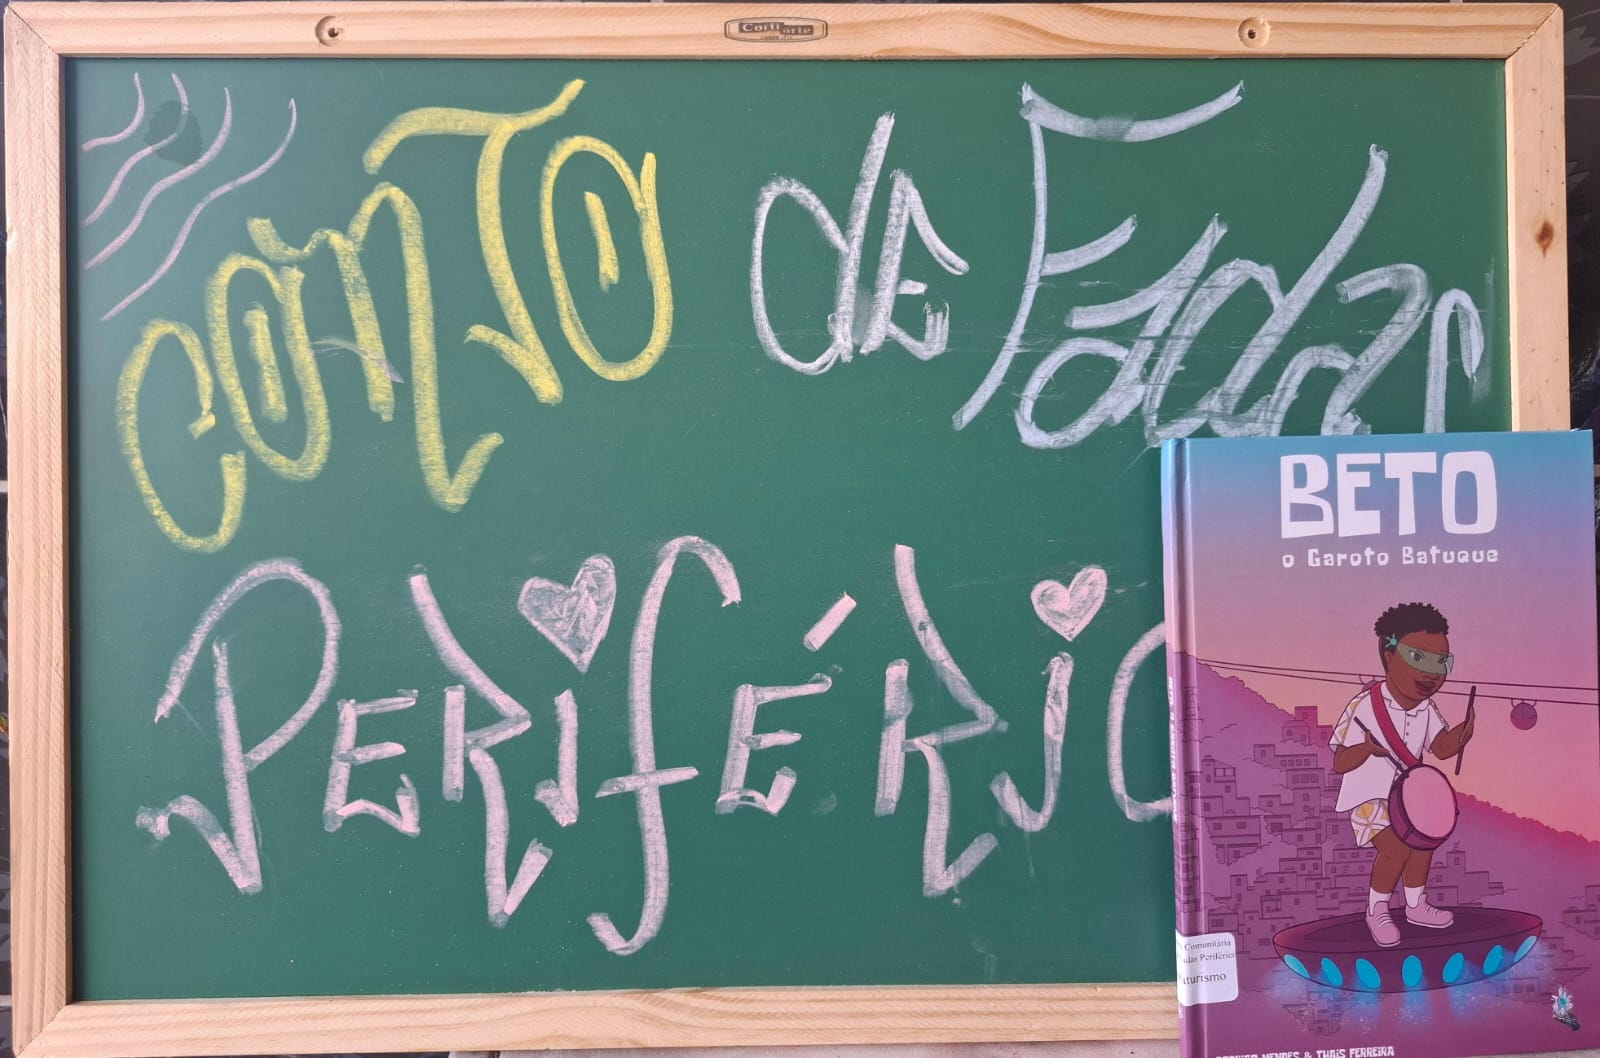 Corti arte
CONTO de Fadas
PERIFÉRIC
BETO
o Garoto Batuque
Comunitária
adas Periférico
uturismo
MENDES & THAIS FERREIRA